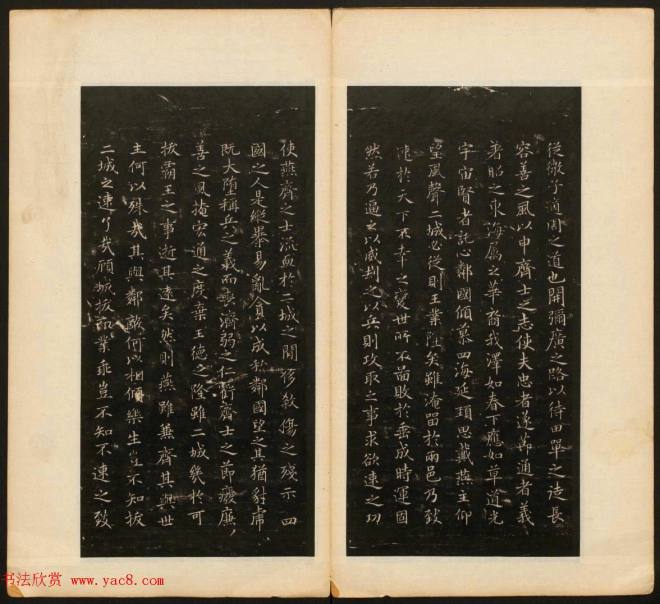 從微子適周之道也開彌廣之路以待田單之徒長
容善之風以申齊士之志使夫忠者遂節通者義
著昭之東海屬之華裔我澤如春下應如草道光
宇宙賢者託心鄰國傾慕四海延頸思戴燕主仰
望風聲二城必從則王業隆矣雖淹留於兩邑乃致
速於天下不幸之變世所不啚敗於垂成時運固
然若乃逼之以威刼之以兵則攻取之事求欲速之功
使燕齊之士流血於二城之間侈煞傷之殘示四
國之人是縱暴易亂貪以成私鄰國望之其猶豺虎
既大墮稱兵之義而喪濟弱之仁虧齊士之節癈廉
善之風掩宏通之度棄王德之隆雖二城幾於可
拔霸王之事逝其遠矣然則燕雖兼齊其與世
主何以殊哉其與鄰敵何以相傾樂生豈不知拔
二城之速了哉顧城拔而業乖豈不知不速之致
书法欣赏 www.yac8.com